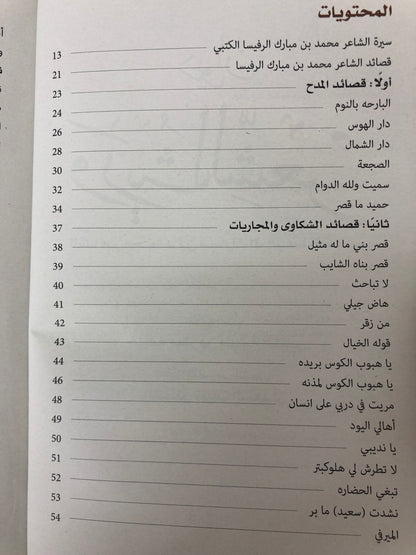 المحتويات
سيرة الشاعر محمد بن مبارك الرفيسا الكتبي 13
قصائد الشاعر محمد بن مبارك الرفيسا 21
أولًا: قصائد المدح 23
البارحه بالنوم 24
دار الهوس 26
دار الشمال 28
الصجعة 30
سميت ولله الدوام 32
حميد ما قصر 34
ثانيًا: قصائد الشكاوى والمجاريات 37
قصر بني ما له مثيل 38
قصر بناه الشايب 39
لا تباحث 40
هاض جيلي 41
من زقر 42
قوله الخيال 43
يا هبوب الكوس بريده 44
يا هبوب الكوس لمذنه 46
مريت في دربي على انسان 48
أهالي اليود 49
يا نديبي 50
لا تطرش لي هلوكبتر 51
تبغي الحضاره 52
نشدت (سعيد) ما بر 53
الميرفي 54